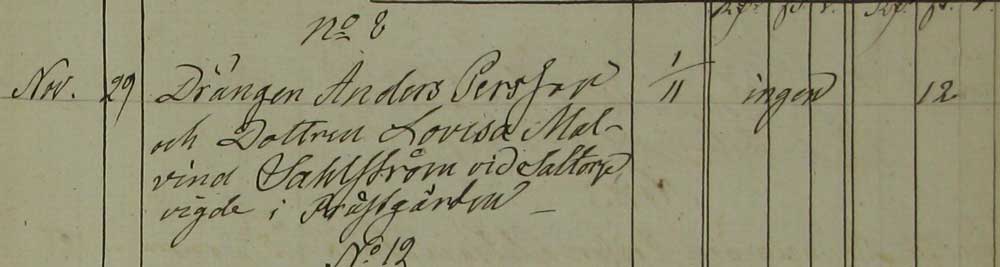 No 8
Nov. 29 Drängen Anders Persson 1/11 ingen 12
och Dottren Lovisa Mal-
vina Sahlström vid Saltorp
vigde i Prästgården –
No 12